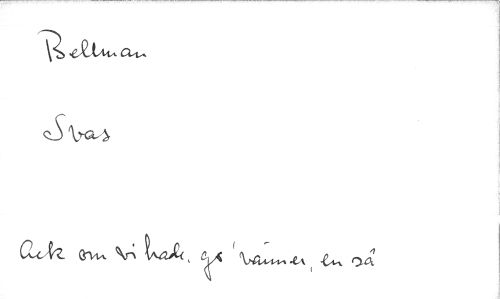 Bellman
Svas
Ack om vi hade, go' vänner, en så